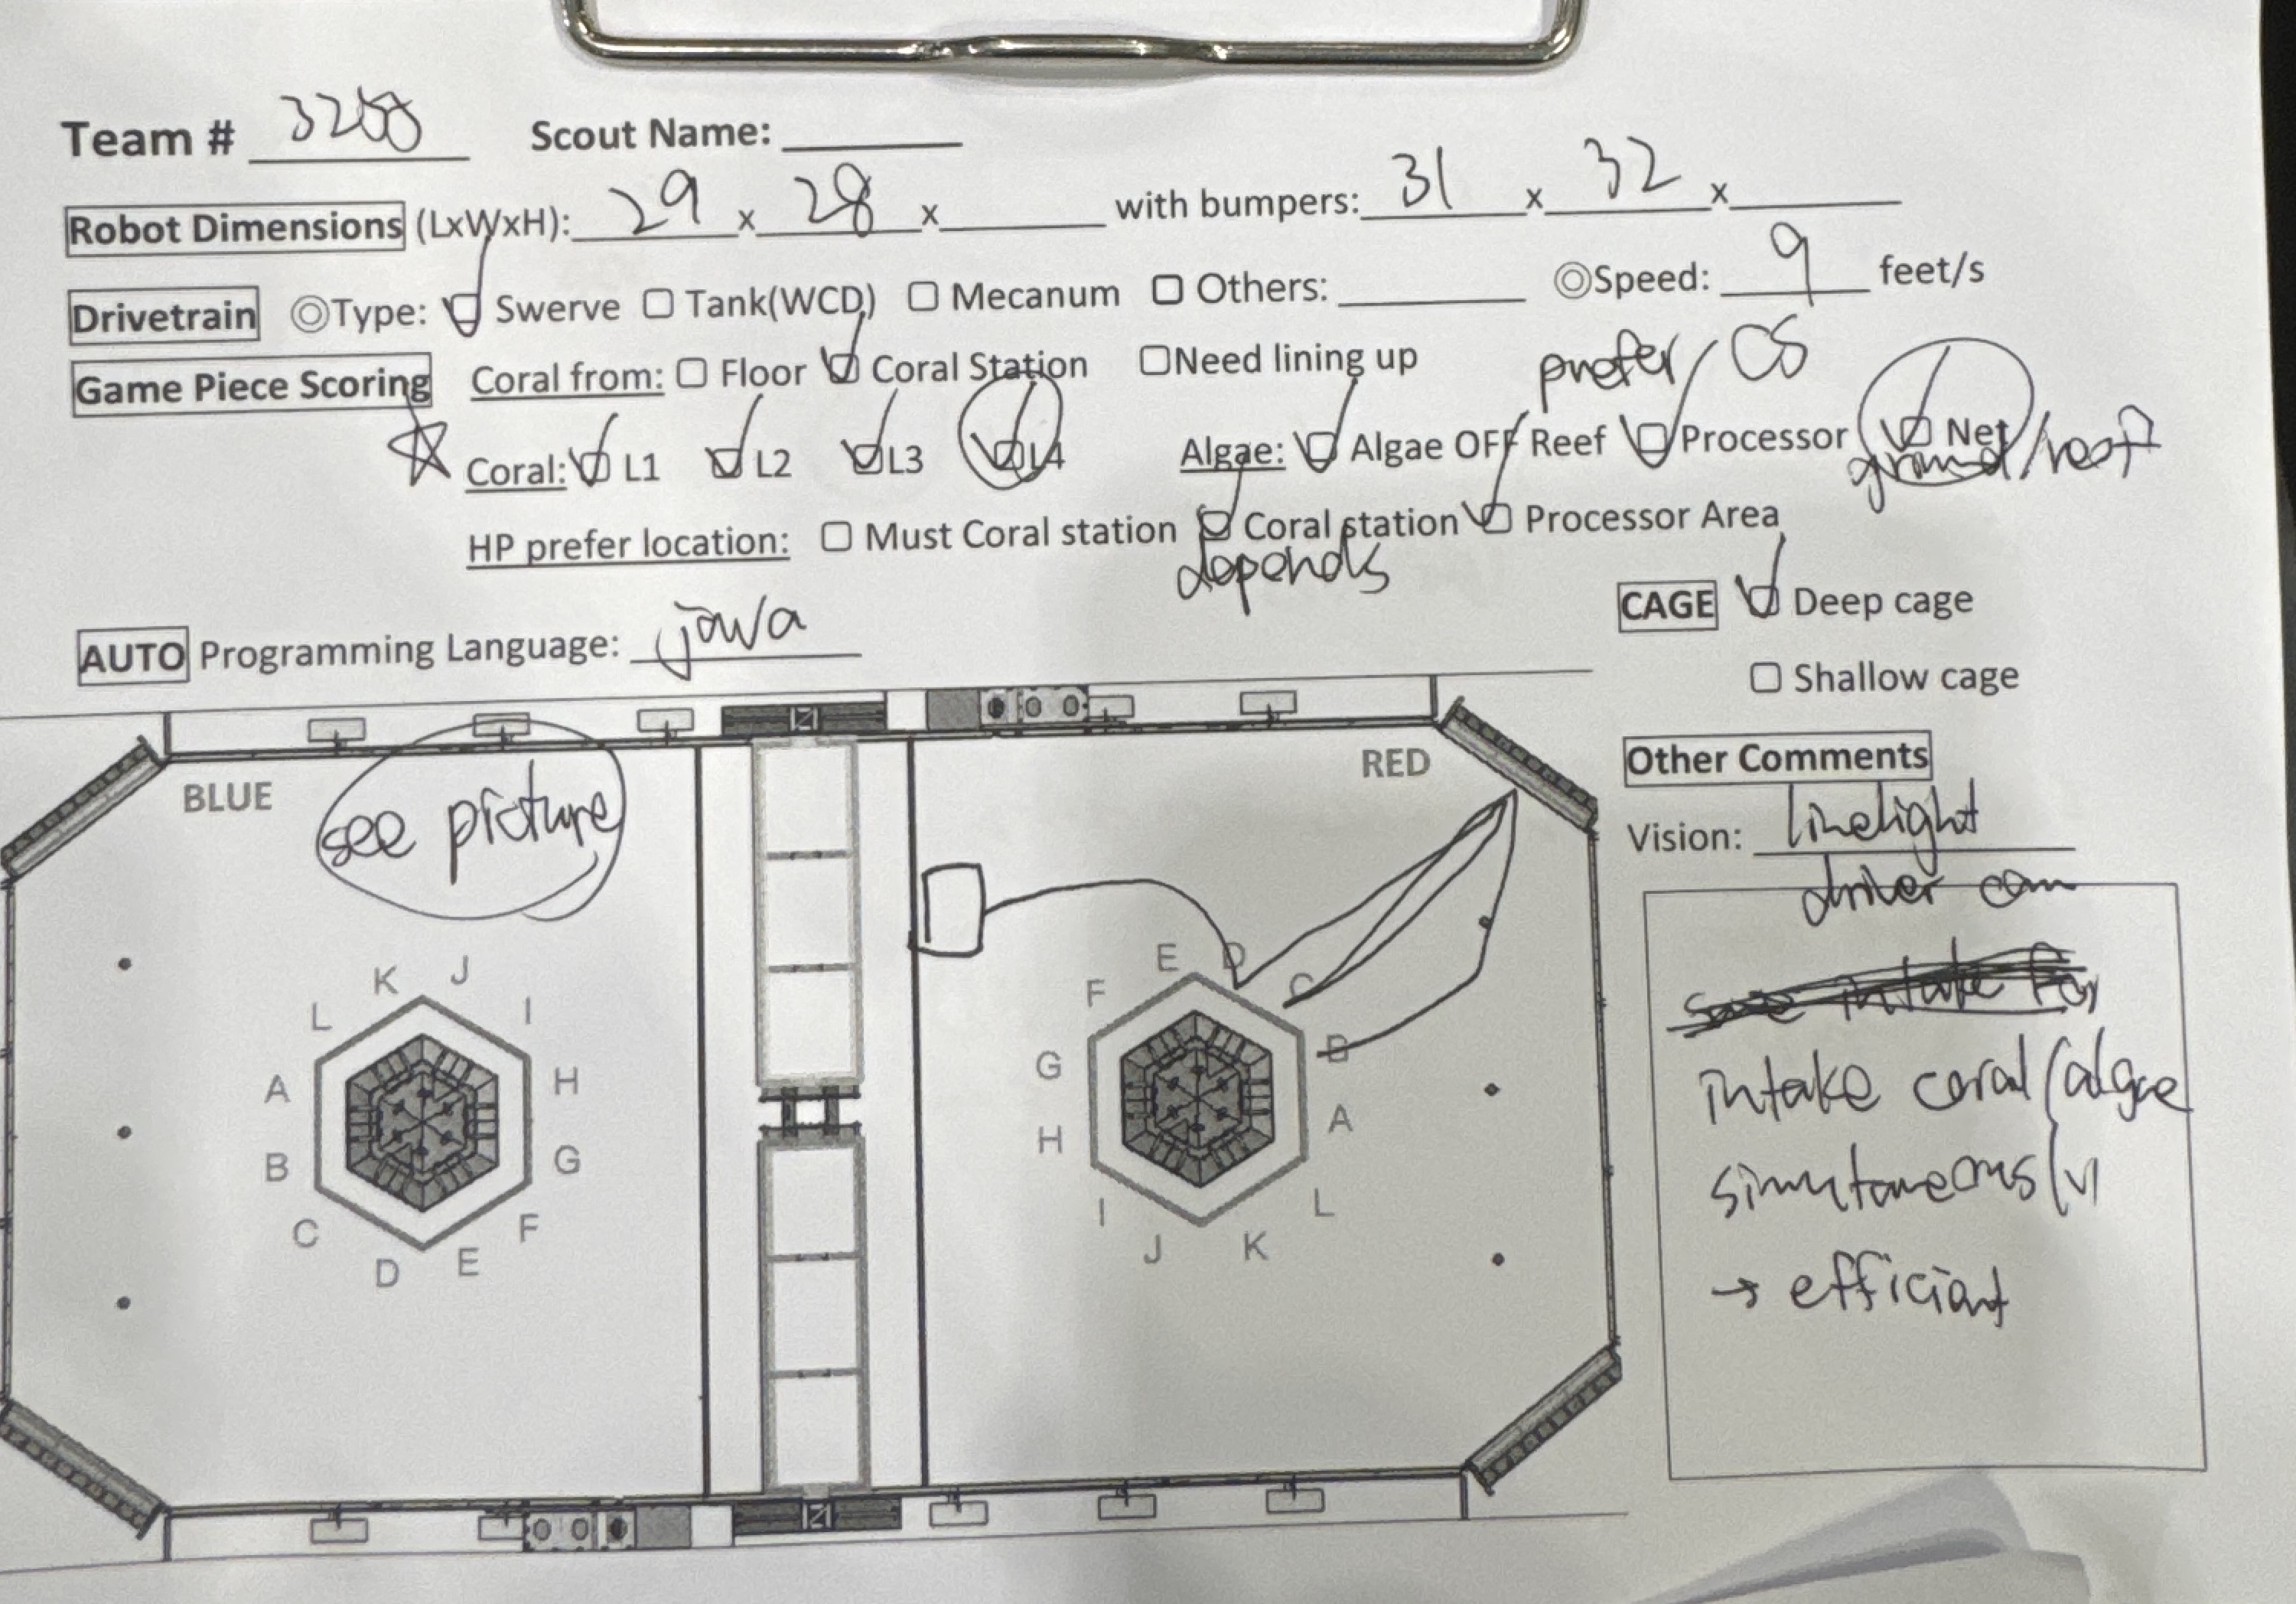 Team # Scout Name:
Robot Dimensions (LxWxH): 29 x 28 x with bumpers: 31 x 32 x
Drivetrain ◎Type: ☑ Swerve ☐ Tank(WCD) ☐ Mecanum ☐ Others: ◎Speed: 9 feet/s
prefer CS
Game Piece Scoring Coral from: ☐ Floor ☑ Coral Station ☐Need lining up
☆ Coral: ☑ L1 ☑ L2 ☑ L3 ☑ L4 Algae: ☑ Algae OFF Reef ☑ Processor ☑ Net
ground/reef
HP prefer location: ☐ Must Coral station ☑ Coral station ☑ Processor Area
depends
AUTO Programming Language: java
CAGE ☑ Deep cage
☐ Shallow cage
BLUE
see picture
RED
K J
L I
A H
B G
C F
D E
E D
F C
G B
H A
I L
J K
Other Comments
Vision: limelight
driver cam
intake for
intake coral/algae
→ efficiant